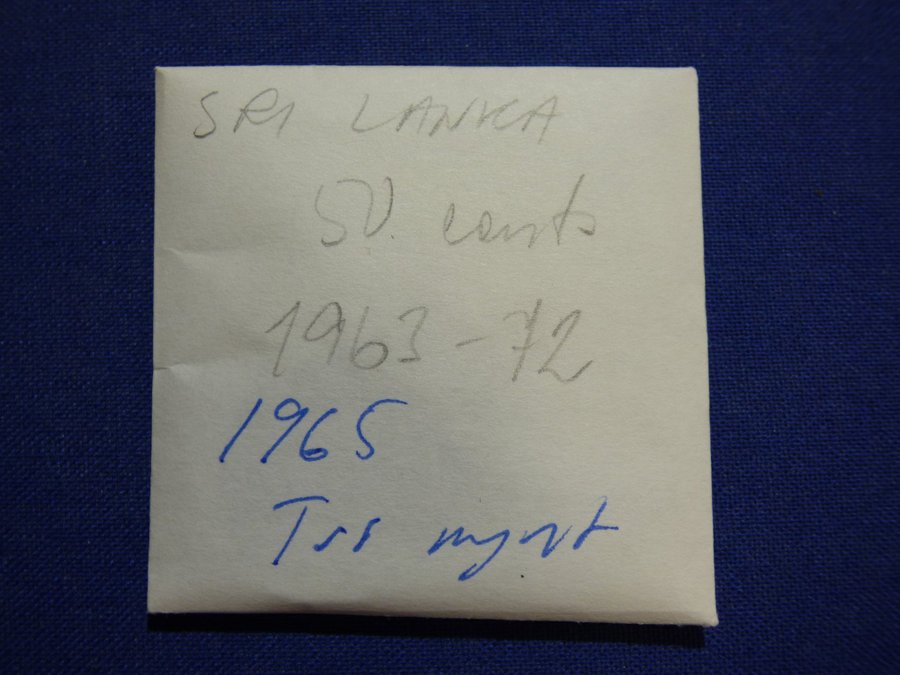 SRI LANKA
50 cents
1963-72
1965
mynt